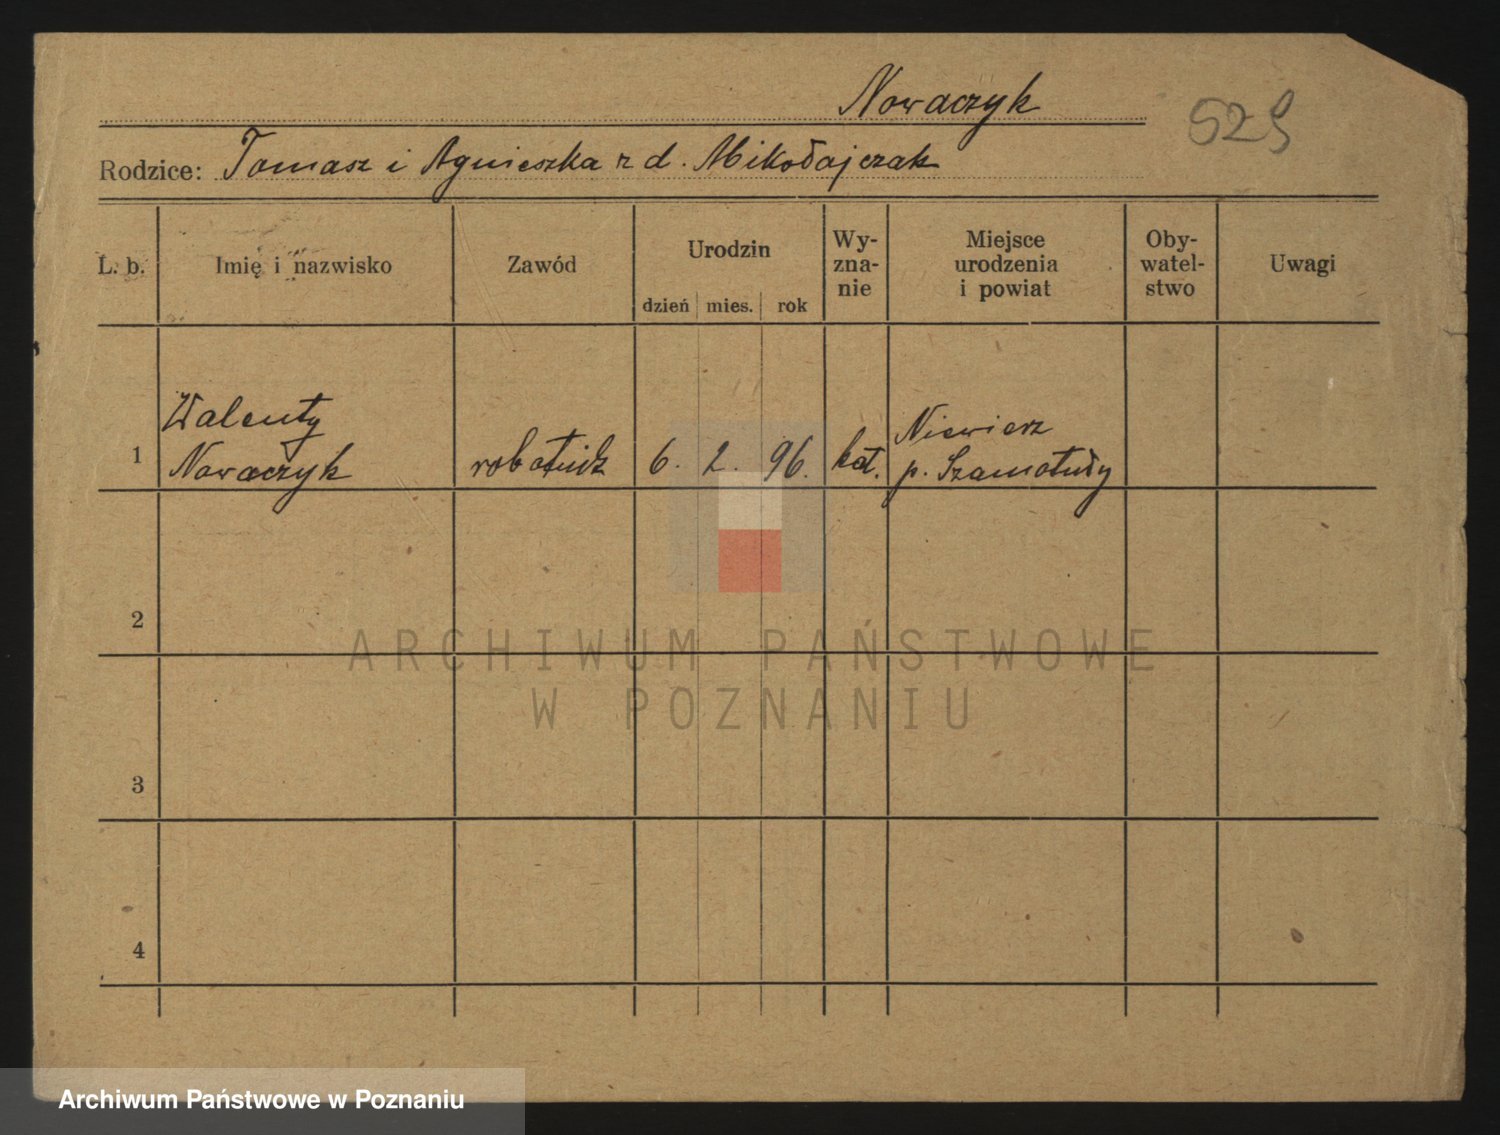 Nowaczyk
529
Rodzice: Tomasz i Agnieszka z d. Mikołajczak
L. b.
Imię i nazwisko
Zawód
Urodzin
dzień mies. rok
Wy-
zna-
nie
Miejsce
urodzenia
i powiat
Oby-
watel-
stwo
Uwagi
1
Walenty
Nowaczyk
robotnik
6. 2. 96.
kat.
Niewierz
p. Szamotuły
2
3
4
ARCHIWUM PAŃSTWOWE
W POZNANIU
Archiwum Państwowe w Poznaniu